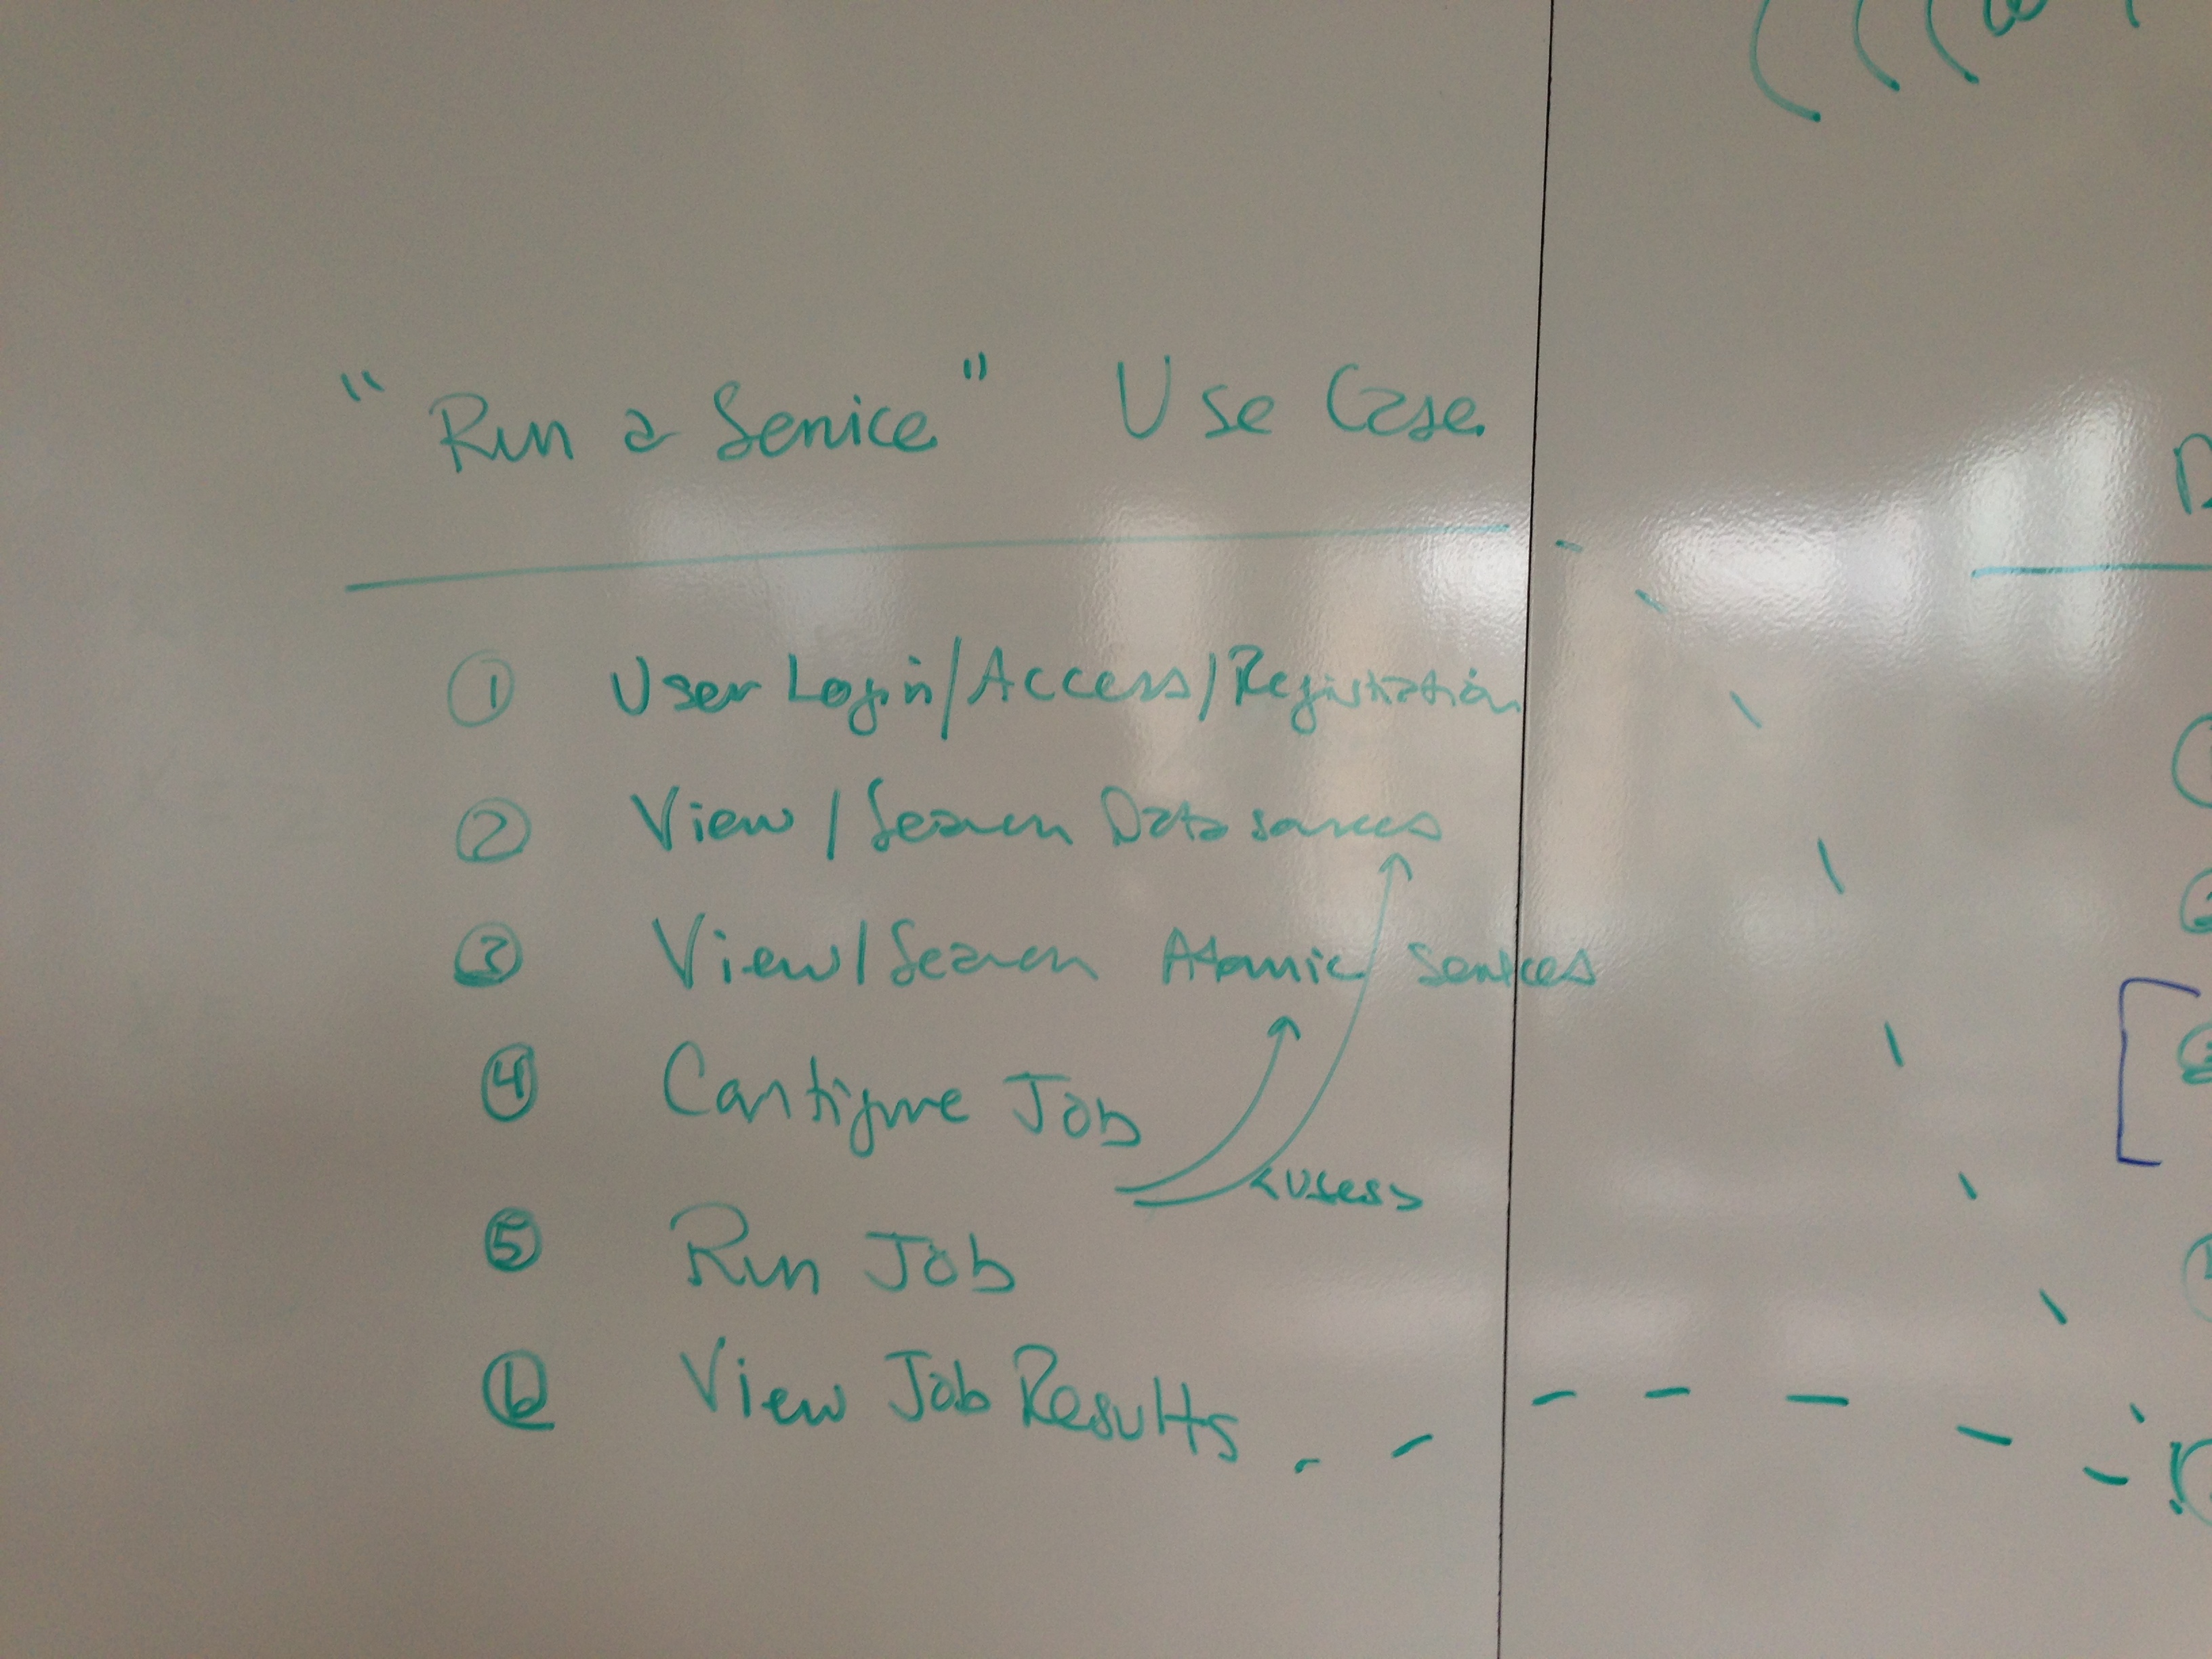 "Run a Service" Use Case
① User Login/Access/Registration
② View/Search Data sources
③ View/Search Atomic services
④ Configure Job
<uses>
⑤ Run Job
⑥ View Job Results